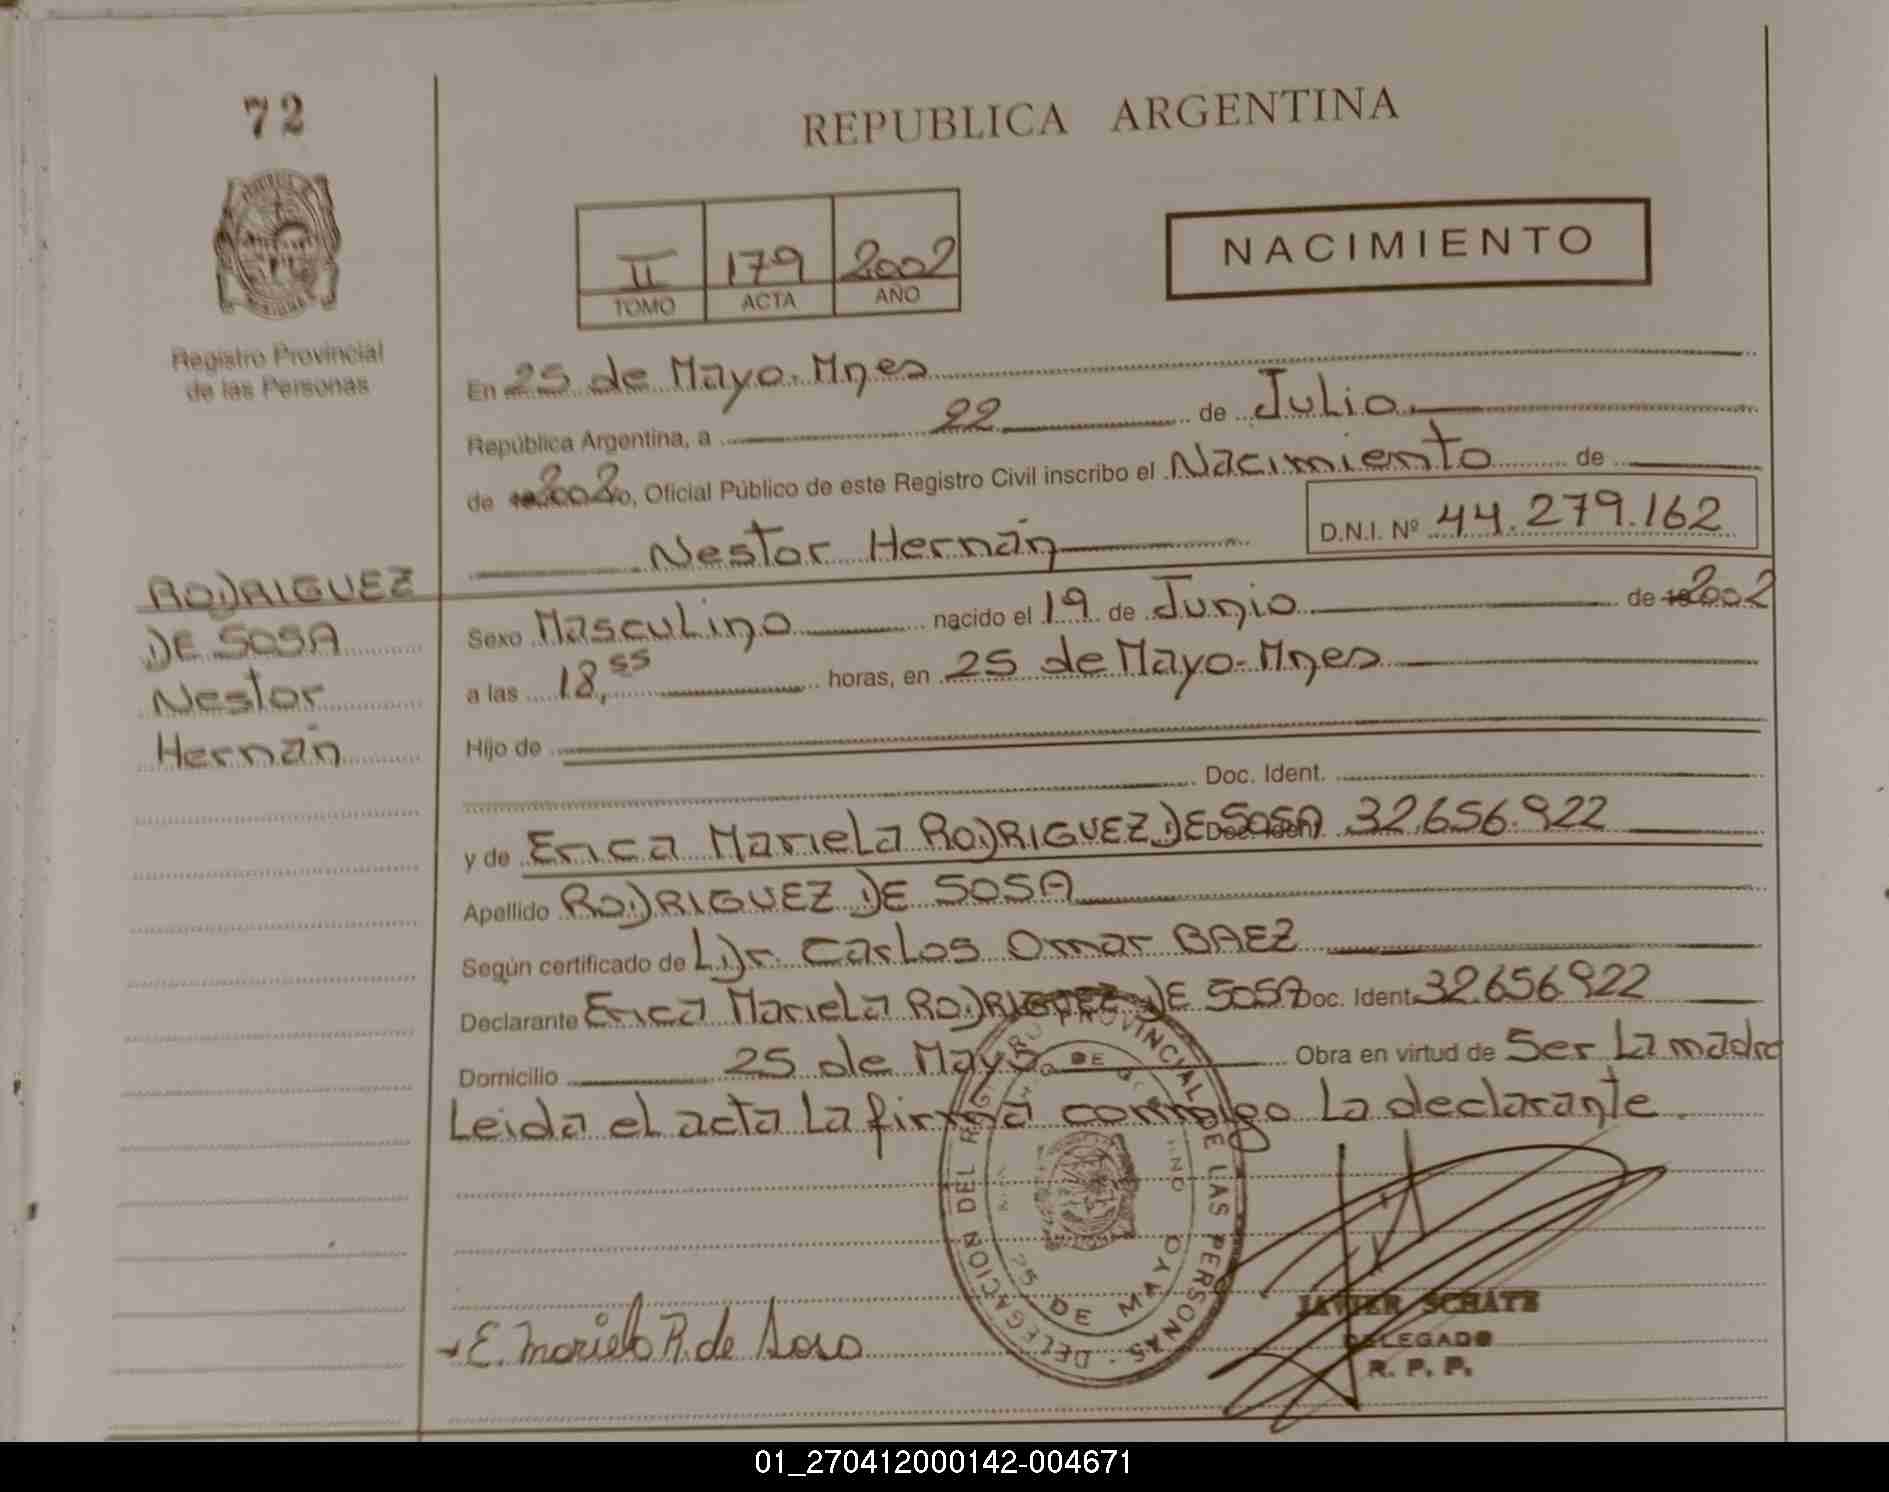 72
REPUBLICA ARGENTINA
II 179 2002
TOMO ACTA AÑO
NACIMIENTO
Registro Provincial
de las Personas
En 25 de Mayo. Mnes
República Argentina, a 22 de Julio
de 2002, Oficial Público de este Registro Civil inscribo el Nacimiento de
Nestor Hernán
D.N.I. Nº 44.279.162
RODRIGUEZ
DE SOSA
Nestor
Hernán
Sexo Masculino nacido el 19 de Junio de 2002
a las 18,55 horas, en 25 de Mayo. Mnes
Hijo de
Doc. Ident.
y de Erica Mariela RODRIGUEZ DE SOSA Doc. Ident. 32.656.922
Apellido RODRIGUEZ DE SOSA
Según certificado de Dr. Carlos Omar BAEZ
Declarante Erica Mariela RODRIGUEZ DE SOSA Doc. Ident. 32.656.922
Domicilio 25 de Mayo. Obra en virtud de Ser La madre
Leida el acta La firma conmigo La declarante.
DELEGACION DEL REGISTRO PROVINCIAL DE LAS PERSONAS
25 DE MAYO
E. Mariela R. de Sosa
JAVIER SCHATZ
DELEGADO
R. P. P.
01_270412000142-004671